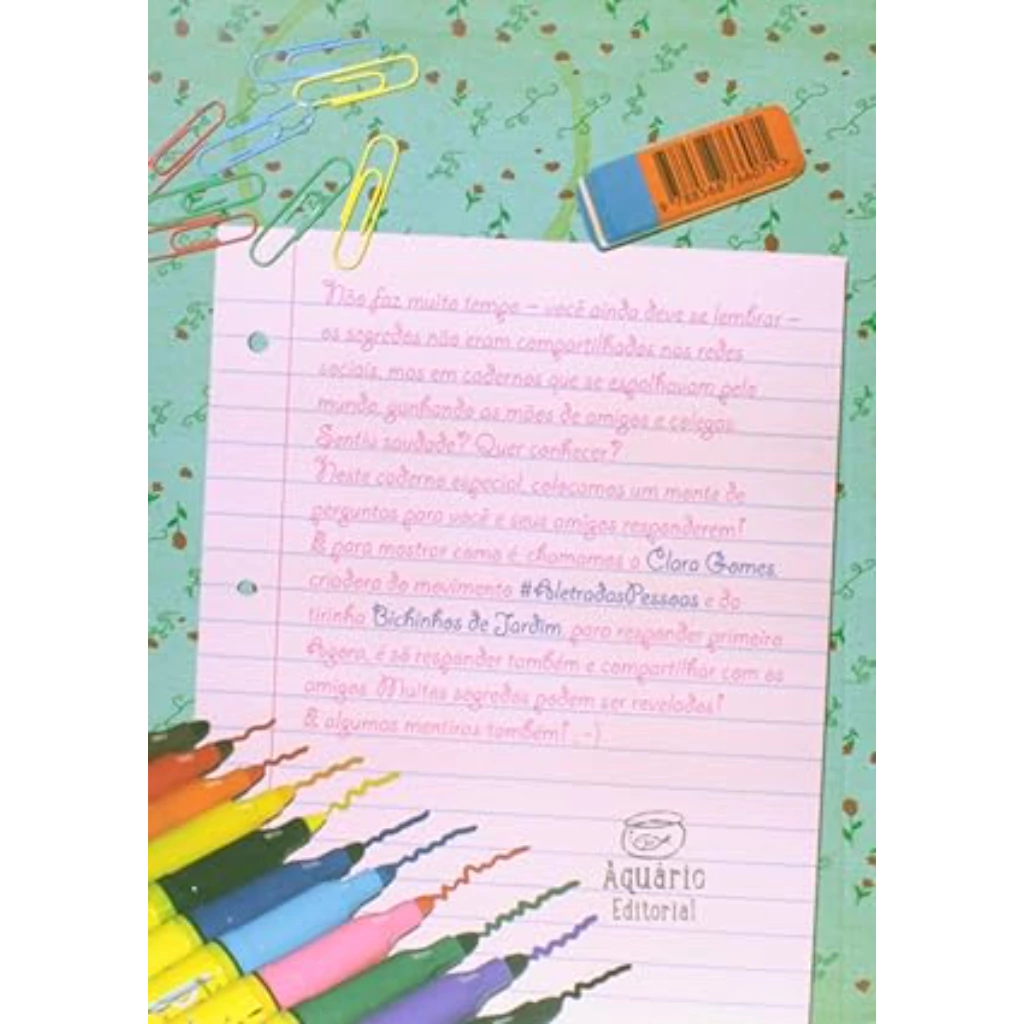 Não faz muito tempo – você ainda deve se lembrar –
os segredos não eram compartilhados nas redes
sociais, mas em cadernos que se espalhavam pelo
mundo, ganhando as mãos de amigos e colegas.
Sentiu saudade? Quer conhecer?
Neste caderno especial, colocamos um monte de
perguntas para você e seus amigos responderem!
E para mostrar como é, chamamos a Clara Gomes,
criadora do movimento #AletradasPessoas e da
tirinha Bichinhos de Jardim, para responder primeiro.
Agora, é só responder também e compartilhar com os
amigos. Muitos segredos podem ser revelados!
E algumas mentiras também! ;-)
Aquário
Editorial